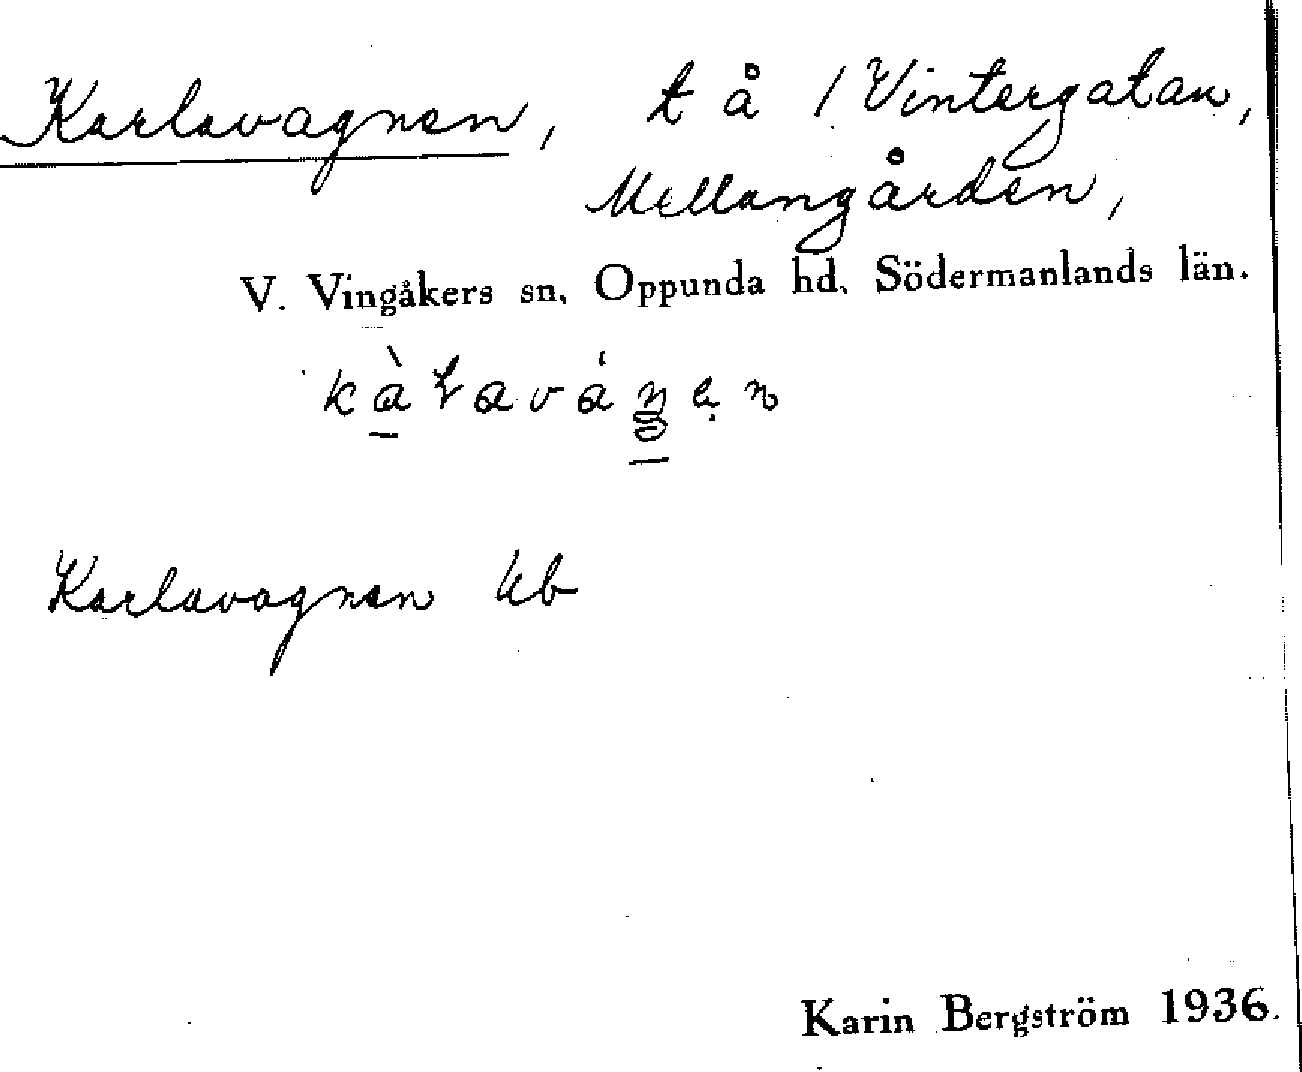 Karlavagnen, t å / Vintergatan,
Mellangården,
V. Vingåkers sn. Oppunda hd. Södermanlands län.
Karlavagnen Ub
Karin Bergström 1936.